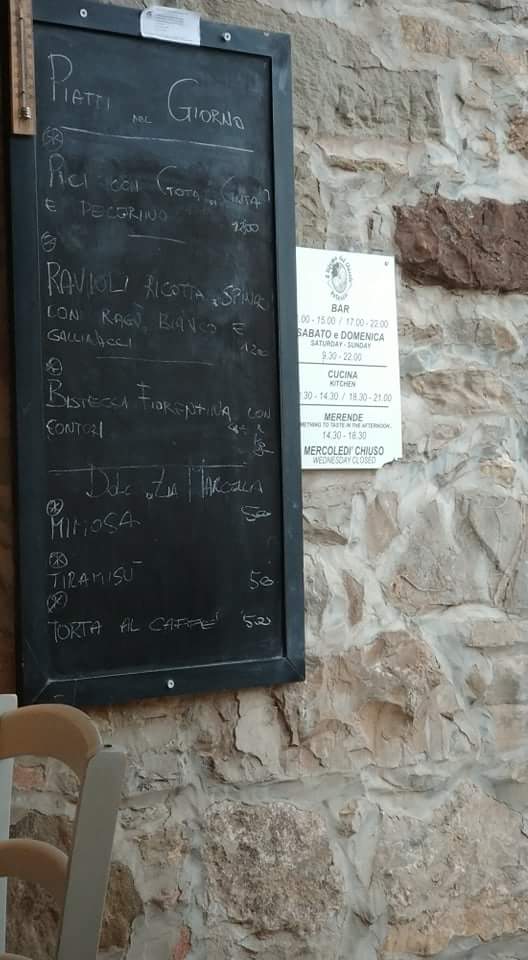 PIATTI DEL GIORNO
PICI CON GOTA DI CINTA
E PECORINO 12,00
RAVIOLI RICOTTA E SPINACI
CON RAGÙ BIANCO E
GALLINACCI 12€
BISTECCA FIORENTINA CON
CONTORI
DOLCI DI ZIA MARCELLA
MIMOSA 5,00
TIRAMISÙ 5,00
TORTA AL CAFFE' 5,00
BAR
.00 - 15.00 / 17.00 - 22.00
SABATO e DOMENICA
SATURDAY - SUNDAY
9.30 - 22.00
CUCINA
KITCHEN
:30 - 14.30 / 18.30 - 21.00
MERENDE
METHING TO TASTE IN THE AFTERNOON
14.30 - 18.30
MERCOLEDI' CHIUSO
WEDNESDAY CLOSED